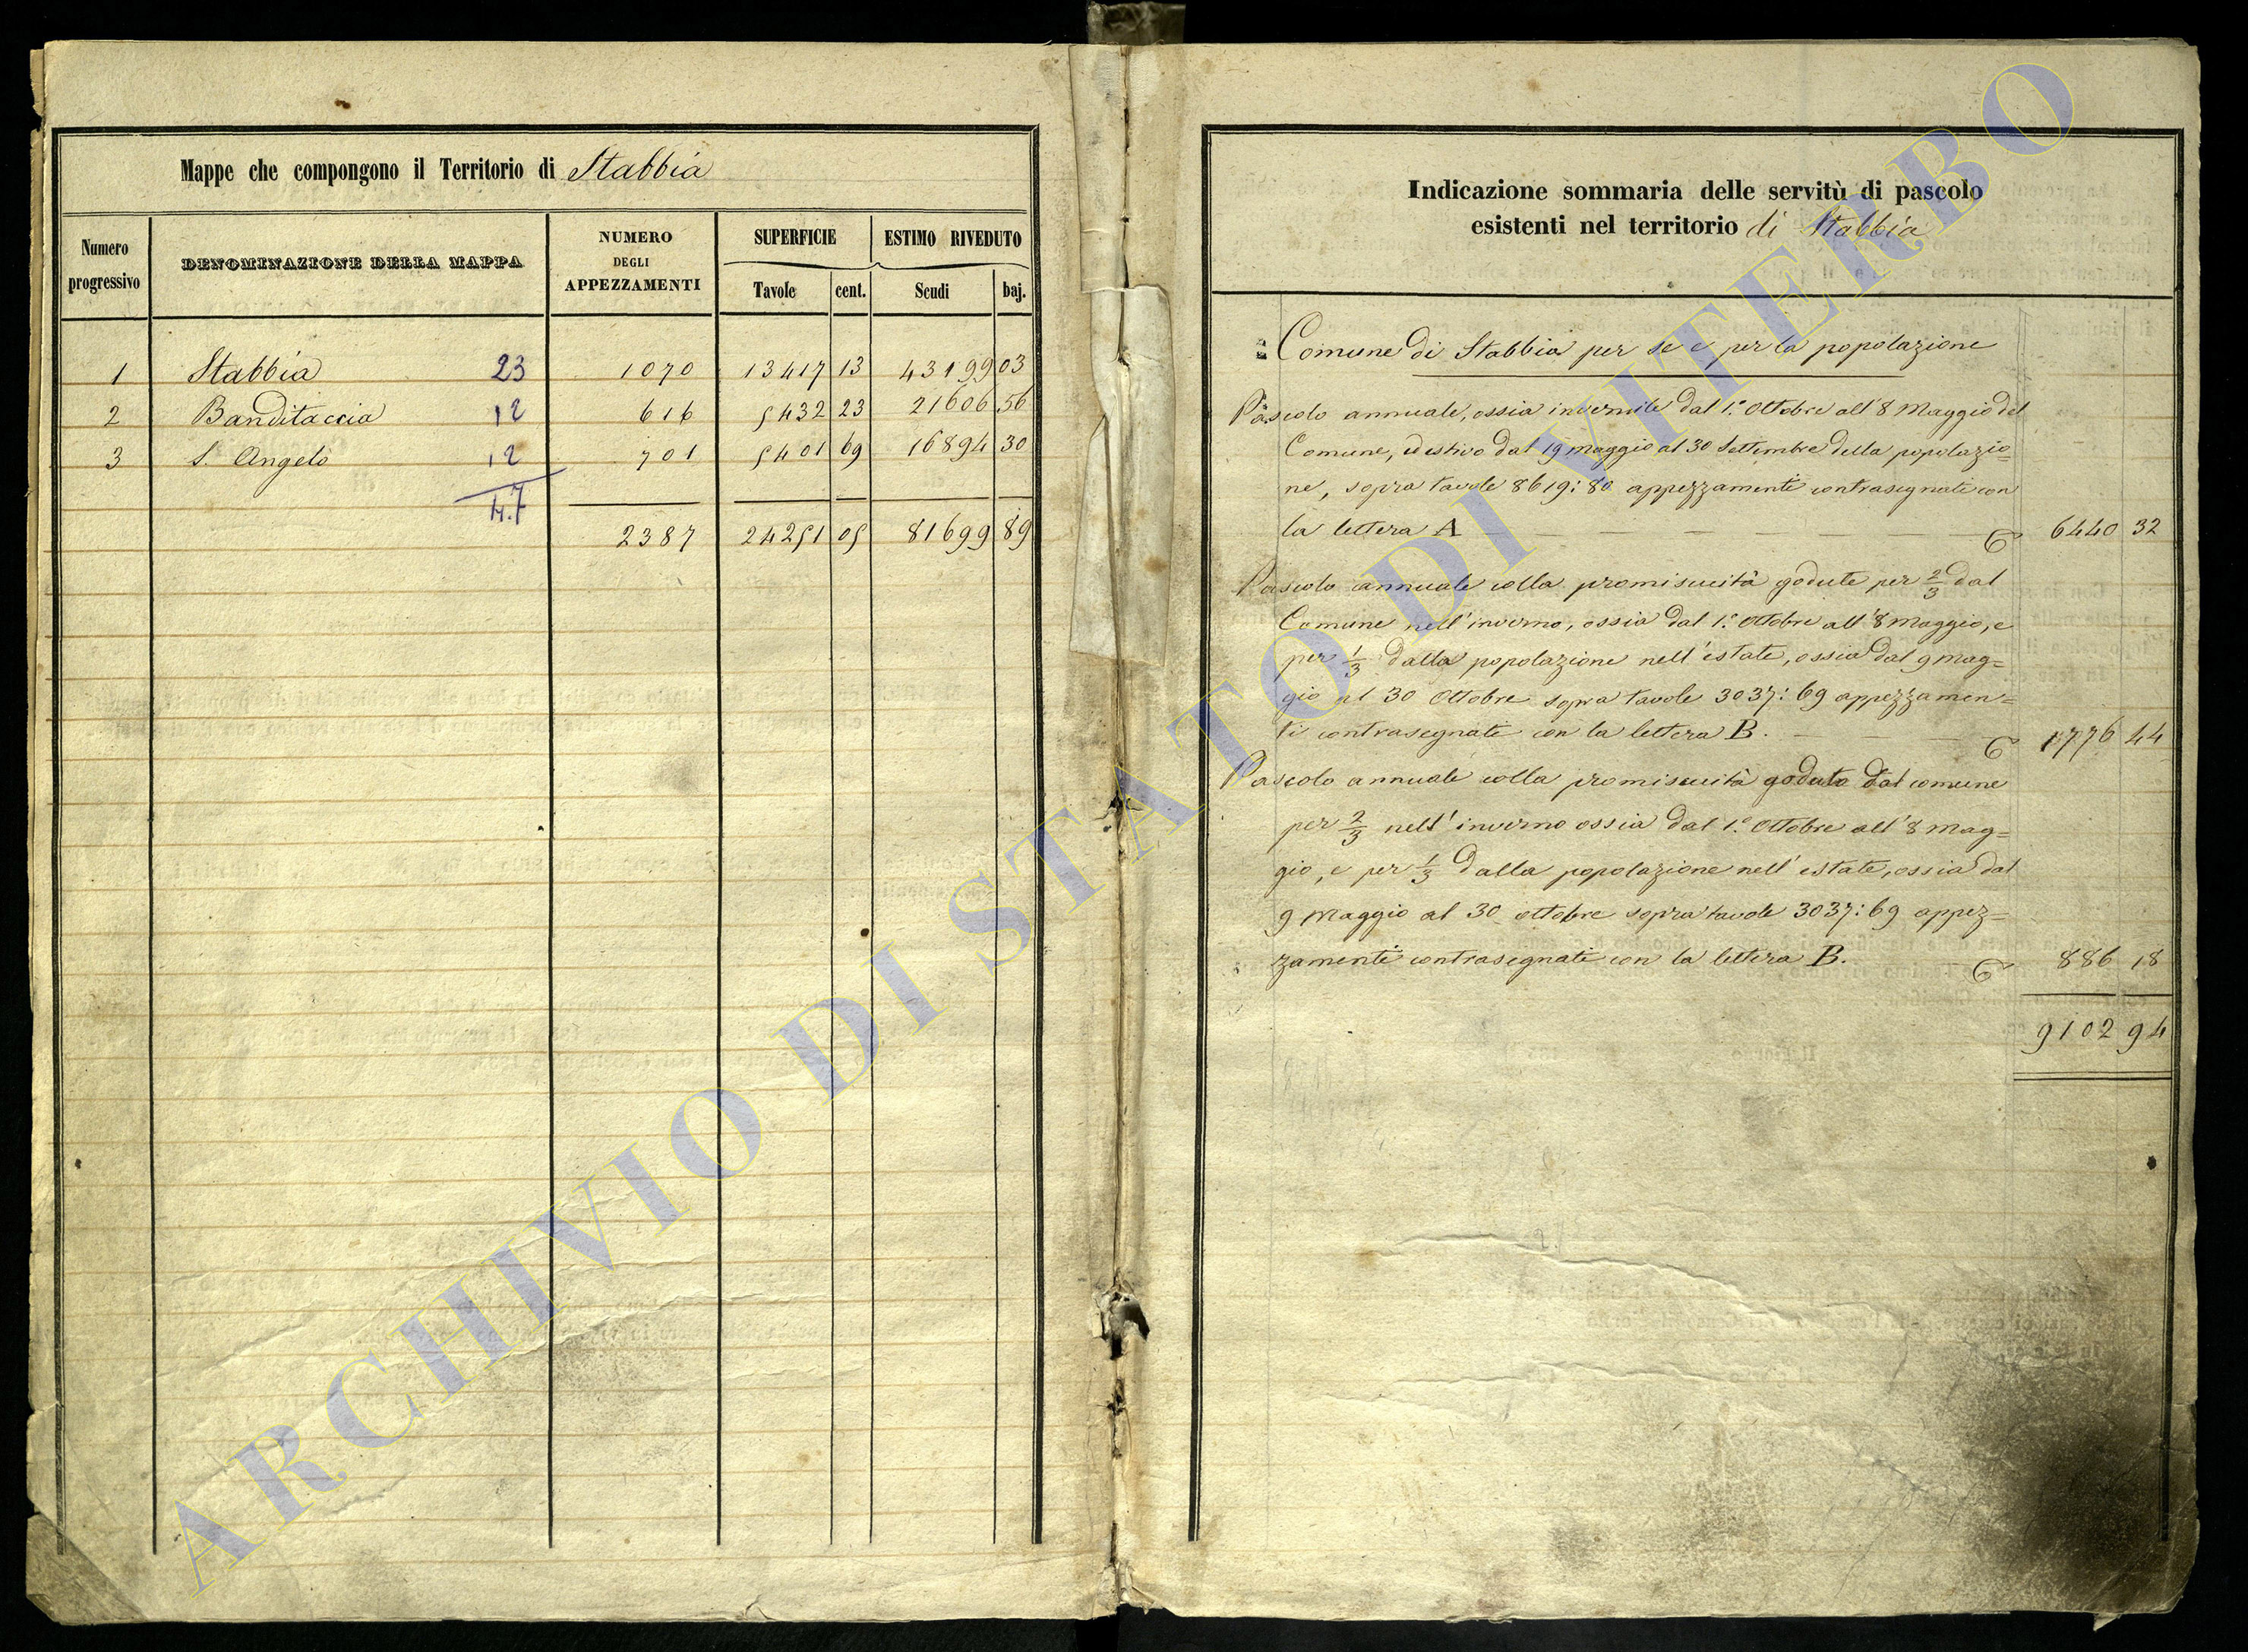 Mappe che compongono il Territorio di Stabbia
Numero progressivo
DENOMINAZIONE DELLA MAPPA
NUMERO DEGLI APPEZZAMENTI
SUPERFICIE
ESTIMO RIVEDUTO
Tavole cent. Scudi baj.
1 Stabbia 23 1070 13417 13 43199 03
2 Banditaccia 12 616 5432 23 21606 56
3 S. Angelo 12 701 5401 69 16894 30
47
2387 24251 05 81699 89
Indicazione sommaria delle servitù di pascolo
esistenti nel territorio di Stabbia
Comune di Stabbia per se e per la popolazione
Pascolo annuale, ossia invernile dal 1.° Ottobre all' 8 Maggio del
Comune, ed estivo dal 19 maggio al 30 Settembre della popolazio=
ne, sopra tavole 8619:80 appezzamenti contrasegnati con
la lettera A 6440 32
Pascolo annuale colla promiscuità godute per 2/3 dal
Comune nell'inverno, ossia dal 1.° Ottobre all' 8 Maggio, e
per 1/3 dalla popolazione nell'estate, ossia dal 9 Mag=
gio al 30 Ottobre sopra tavole 3037:69 appezzamen=
ti contrasegnati con la lettera B. 1776 44
Pascolo annuale colla promiscuità goduta dal comune
per 2/3 nell'inverno ossia dal 1.° Ottobre all' 8 Mag=
gio, e per 1/3 dalla popolazione nell'estate, ossia dal
9 Maggio al 30 ottobre sopra tavole 3037:69 appez=
zamenti contrasegnati con la lettera B. 886 18
9102 94
ARCHIVIO DI STATO DI VITERBO